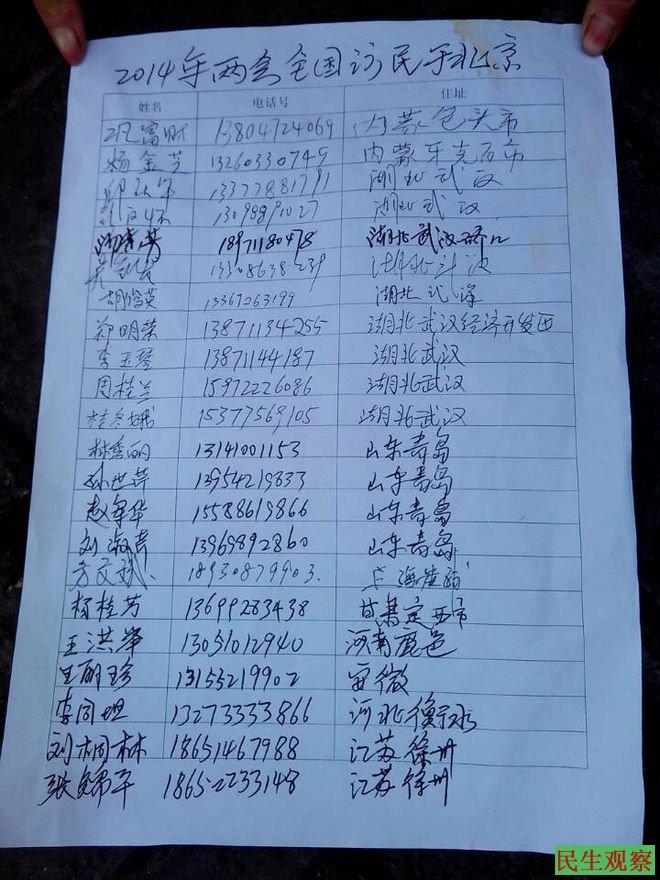 2014年两会全国访民于北京
姓名 电话号 住址
巩富财 13804724069 内蒙包头市
杨金芝 13260330749 内蒙牙克石市
13377881791 湖北武汉
13098891027 湖北武汉
18971180478 湖北武汉硚口
13308638239 湖北武汉
胡 英 13367263199 湖北武汉
郑明荣 13871134255 湖北武汉经济开发区
李玉琴 13871144187 湖北武汉
周桂兰 15972226086 湖北武汉
桂冬娥 15377569105 湖北武汉
林秀丽 13141001153 山东青岛
孙世萍 13954219833 山东青岛
赵军华 15588619866 山东青岛
刘淑芹 13969892860 山东青岛
18930879903. 上海
杨桂芳 13699283438 甘肃定西市
王洪举 13031012940 河南鹿邑
王丽珍 13155219902 安徽
李同 13273333866 河北衡水
刘桐林 18651467988 江苏徐州
张 平 18652233148 江苏徐州
民生观察